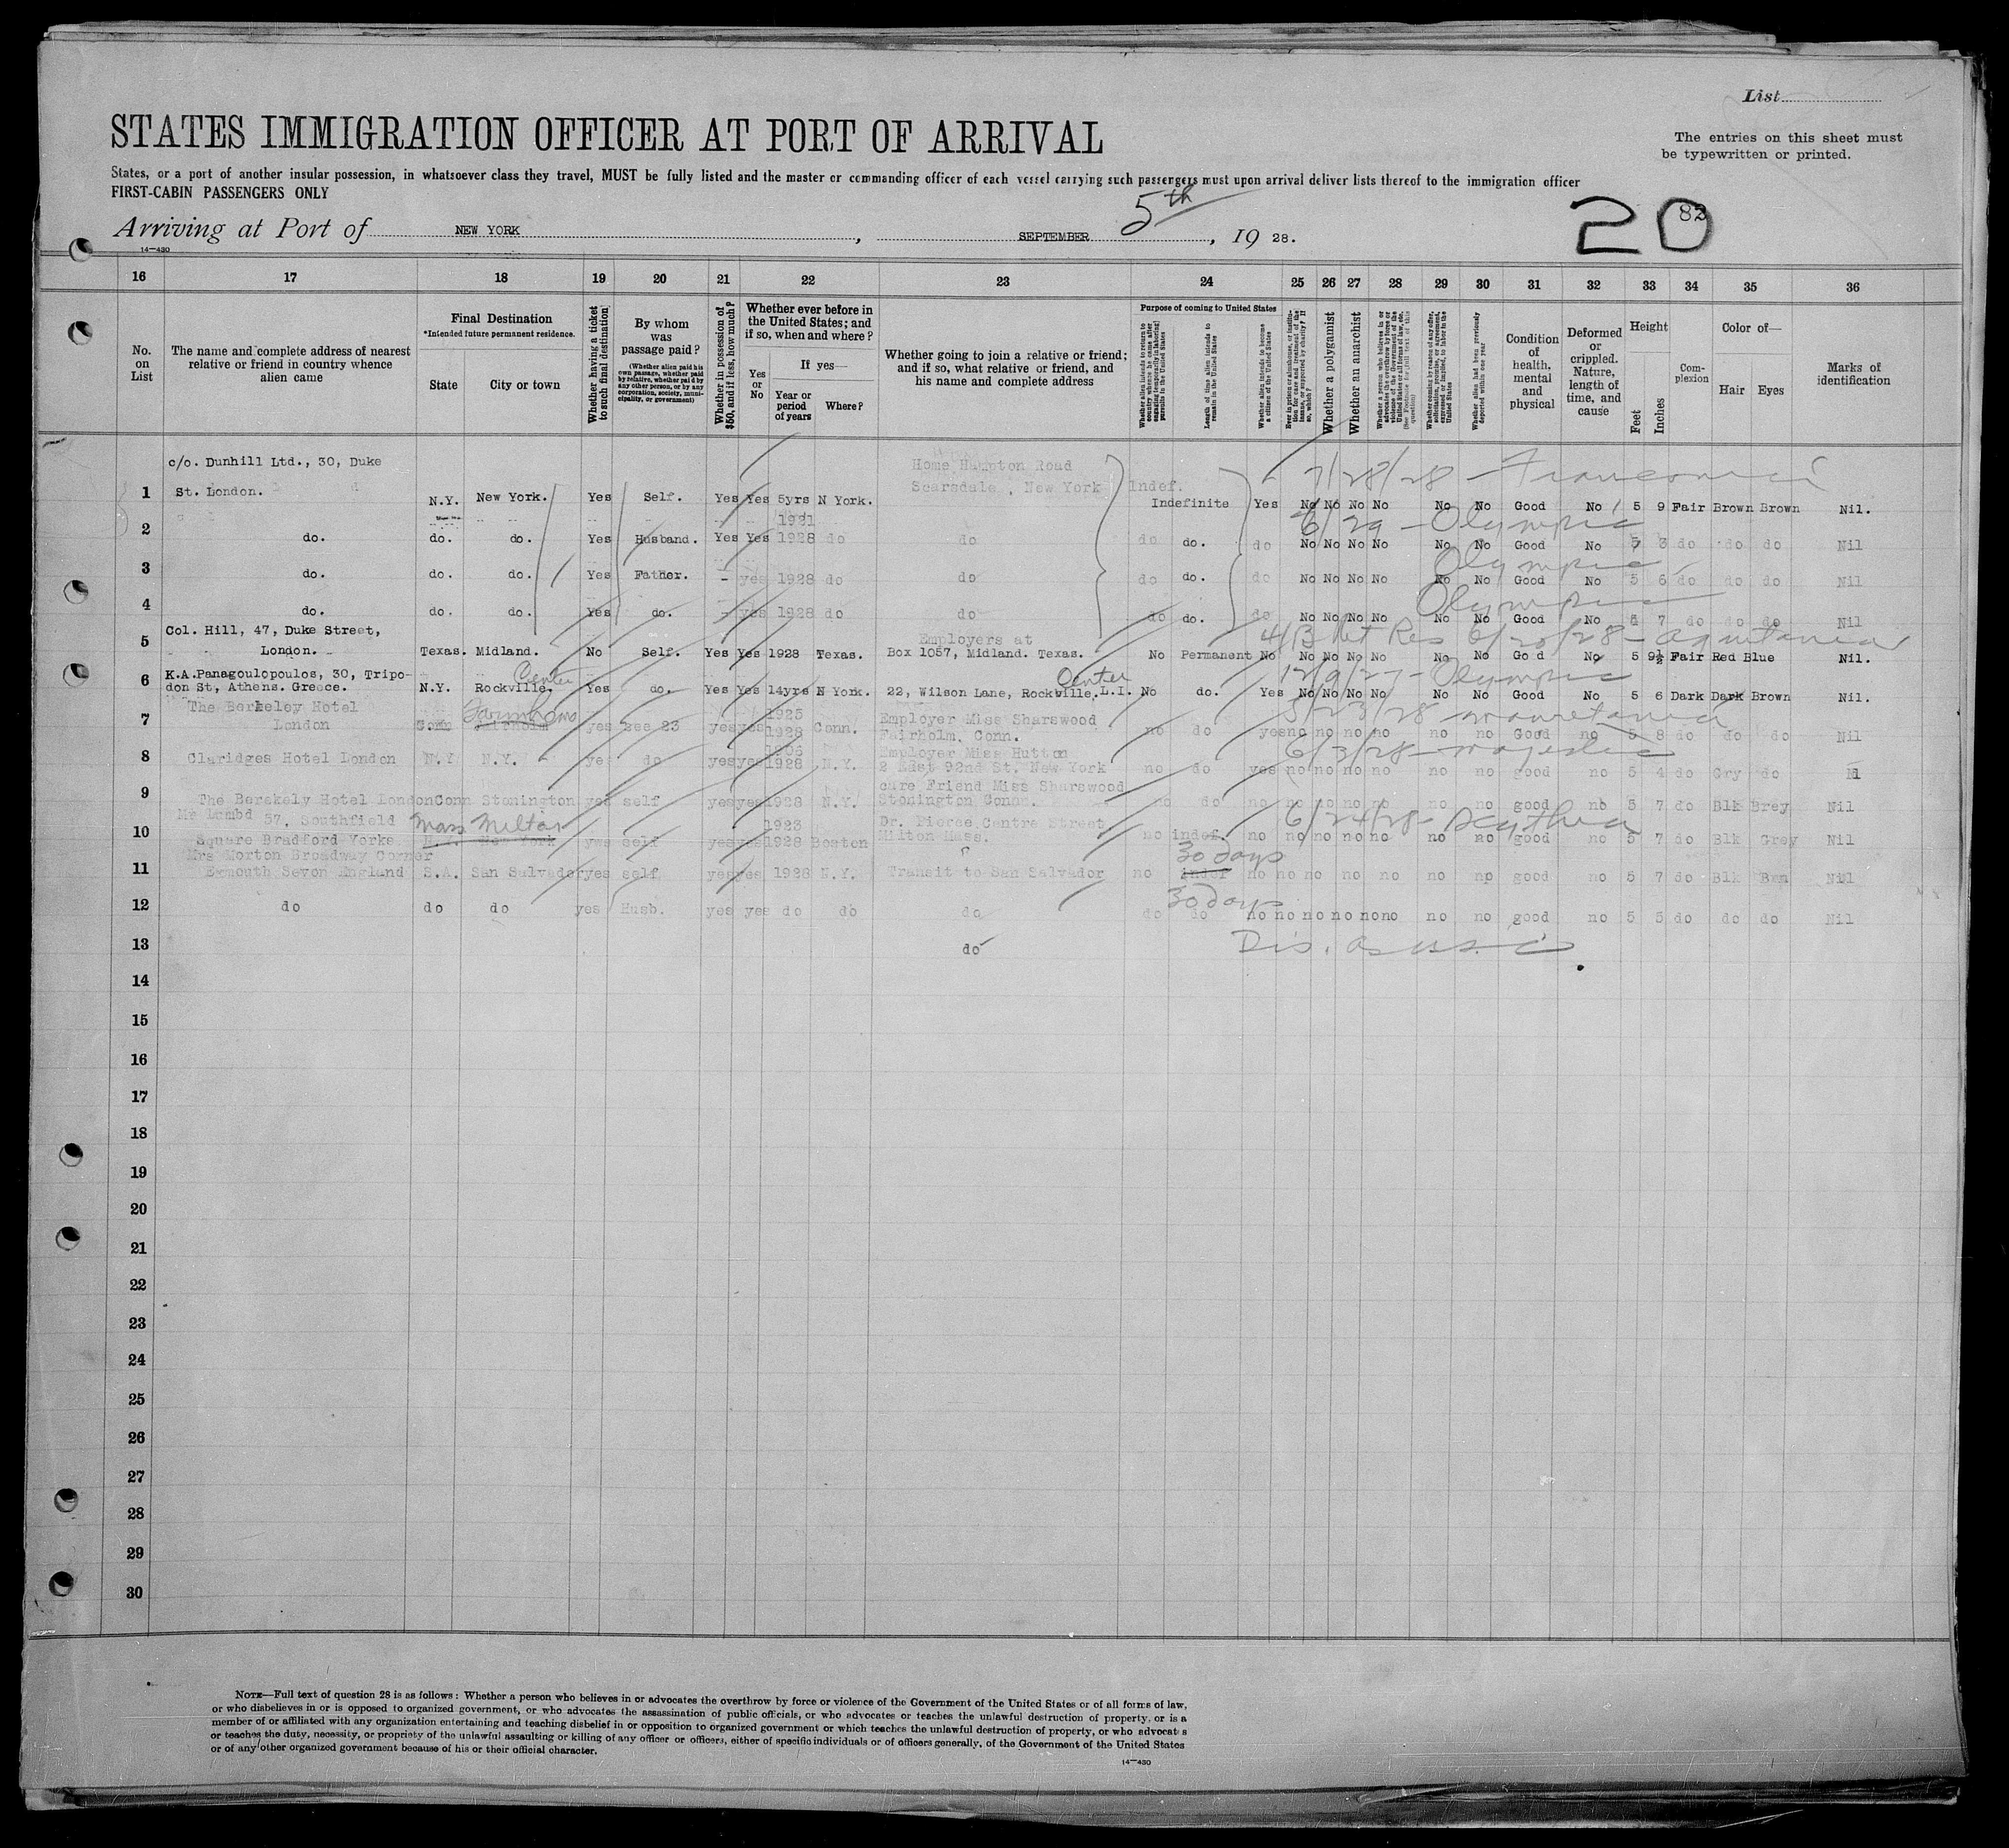 List
STATES IMMIGRATION OFFICER AT PORT OF ARRIVAL
The entries on this sheet must
be typewritten or printed.
States, or a port of another insular possession, in whatsoever class they travel, MUST be fully listed and the master or commanding officer of each vessel carrying such passengers must upon arrival deliver lists thereof to the immigration officer
FIRST-CABIN PASSENGERS ONLY
Arriving at Port of NEW YORK, SEPTEMBER 5th, 19 28.
20 82
14—430
16 17 18 19 20 21 22 23 24 25 26 27 28 29 30 31 32 33 34 35 36
No. on List
The name and complete address of nearest relative or friend in country whence alien came
Final Destination
*Intended future permanent residence.
State City or town
Whether having a ticket to such final destination
By whom was passage paid?
(Whether alien paid his own passage, whether paid by relative, whether paid by any other person, or by any corporation, society, municipality, or government)
Whether in possession of $50, and if less, how much?
Whether ever before in the United States; and if so, when and where?
Yes or No
If yes—
Year or period of years
Where?
Whether going to join a relative or friend; and if so, what relative or friend, and his name and complete address
Purpose of coming to United States
Whether alien intends to return to country whence he came after engaging temporarily in laboring pursuits in the United States
Length of time alien intends to remain in the United States
Whether alien intends to become a citizen of the United States
Whether a polygamist
Whether an anarchist
Whether alien had been previously deported within one year
Condition of health, mental and physical
Deformed or crippled. Nature, length of time, and cause
Height
Feet Inches
Complexion
Color of—
Hair Eyes
Marks of identification
c/o. Dunhill Ltd., 30, Duke Home Hampton Road 7/28/28 - Franconia
1 St. London. N.Y. New York. Yes Self. Yes Yes 5yrs N York. Scarsdale, New York Indef. Indefinite Yes No No No No No No Good No 5 9 Fair Brown Brown Nil.
1921 6/29 - Olympic
2 do. do. do. Yes Husband. Yes Yes 1928 do do do do. do No No No No No No Good No 5 3 do do do Nil
Olympic
3 do. do. do. Yes Father. - yes 1928 do do do do. do No No No No No No Good No 5 6 do do do Nil
Olympic
4 do. do. do. Yes do. - yes 1928 do do do do. do No No No No No No Good No 5 7 do do do Nil
Col. Hill, 47, Duke Street, Employers at 4/B Net Res 6/20/28 - Aquitania
5 London. Texas. Midland. No Self. Yes Yes 1928 Texas. Box 1057, Midland. Texas. No Permanent No No No No No No No Good No 5 9½ Fair Red Blue Nil.
K.A.Panagoulopoulos, 30, Tripo- Center Center 12/9/27 - Olympic
6 don St, Athens. Greece. N.Y. Rockville. Yes do. Yes Yes 14yrs N York. 22, Wilson Lane, Rockville.L.I. No do. Yes No No No No No No Good No 5 6 Dark Dark Brown Nil.
The Berkeley Hotel 1925 Employer Miss Sharswood 5/23/28 Mauretania
7 London Conn yes see 23 yes yes 1928 Conn. Fairholm, Conn. no do yes no no no no no no Good no 5 8 do do do Nil
1906 Employer Miss Hutton 6/3/28 - Majestic
8 Claridges Hotel London N.Y. N.Y. yes do yes yes 1928 N.Y. 2 East 92nd St. New York no do yes no no no no no no good no 5 4 do Gry do Nil
care Friend Miss Sharswood
9 The Berekely Hotel London Conn Stonington yes self yes yes 1928 N.Y. Stonington Conn. no do no no no no no no no good no 5 7 do Blk Brey Nil
Mr Lambd 37, Southfield Mass Milton 1923 Dr. Pierce Centre Street 6/24/28 - Scythia
10 Square Bradford Yorks. New York yws self yes yes 1928 Boston Milton Mass. no indef. no no no no no no no good no 5 7 do Blk Grey Nil
Mrs Morton Broadway Corner 30 days
11 Exmouth Sevon England S.A. San Salvador yes self yes yes 1928 N.Y. Transit to San Salvador no indef no no no no no no no good no 5 7 do Blk Brn Nil
30 days
12 do do do yes Husb. yes yes do do do do do no no no no no no no no good no 5 5 do do do Nil
13 do Dis.
14
15
16
17
18
19
20
21
22
23
24
25
26
27
28
29
30
NOTE—Full text of question 28 is as follows: Whether a person who believes in or advocates the overthrow by force or violence of the Government of the United States or of all forms of law,
or who disbelieves in or is opposed to organized government, or who advocates the assassination of public officials, or who advocates or teaches the unlawful destruction of property, or is a
member of or affiliated with any organization entertaining and teaching disbelief in or opposition to organized government or which teaches the unlawful destruction of property, or who advocates
or teaches the duty, necessity, or propriety of the unlawful assaulting or killing of any officer or officers, either of specific individuals or of officers generally, of the Government of the United States
or of any other organized government because of his or their official character.
14—430